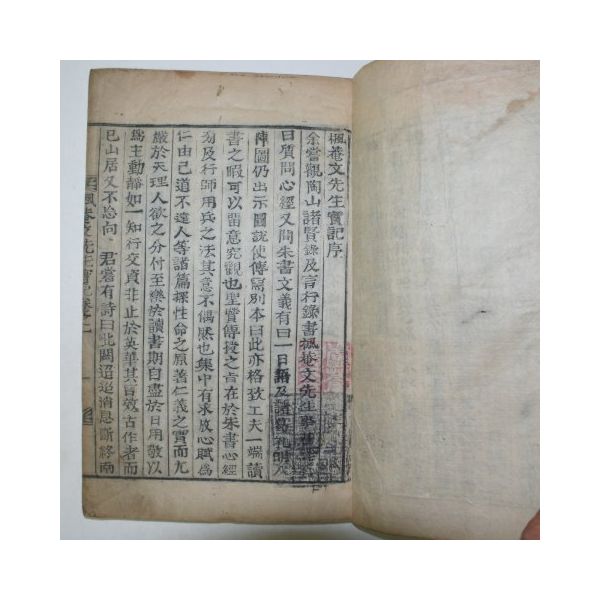 楓菴文先生實記序
余嘗觀陶山諸賢錄及言行錄書楓菴文先生事
日質問心經又問朱書文義有曰一日語及諸葛孔明八
陣圖仍出示圖說使傳寫別本曰此亦格致工夫一端讀
書之暇可以留意究觀也聖賢傳授之旨在於朱書心經
及行師用兵之法其意不偶然也集中有求放心賦爲
仁由己道不遠人等諸篇探性命之原著仁義之實而尤
嚴於天理人欲之分付至樂於讀書期自盡於日用敬以
爲主動靜如一知行交資非止於英華其旨效古作者而
已山居又不忘向君嘗有詩曰北闕迢迢消息斷終南
楓菴文先生實記卷之一